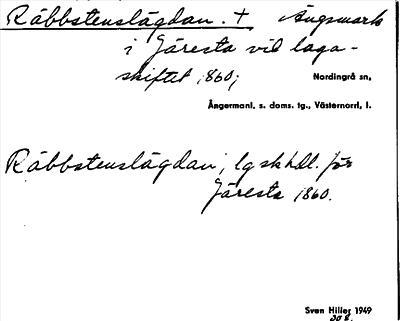 Räbbstenslägdan. + Ängsmark
i Järesta vid laga-
skiftet 1860;
Nordingrå sn,
Ångermanl. s. doms. tg., Västernorrl. l.
Räbbstenslägdan, lgskhdl. för
Järesta 1860.
Sven Hiller 1949